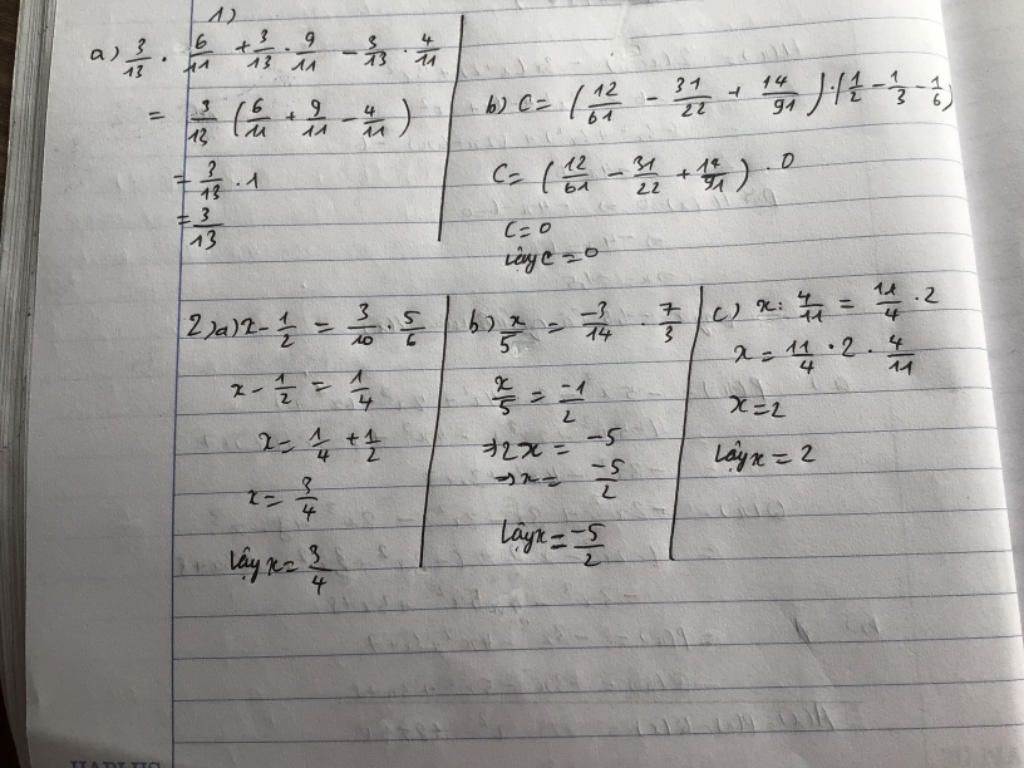 1)
a) 3/13 . 6/11 + 3/13 . 9/11 - 3/13 . 4/11
= 3/13 (6/11 + 9/11 - 4/11)
= 3/13 . 1
= 3/13
b) C = (12/61 - 31/22 + 14/91) . (1/2 - 1/3 - 1/6)
C = (12/61 - 31/22 + 14/91) . 0
C = 0
Vậy C = 0
2) a) x - 1/2 = 3/10 . 5/6
x - 1/2 = 1/4
x = 1/4 + 1/2
x = 3/4
Vậy x = 3/4
b) x/5 = -3/14 . 7/3
x/5 = -1/2
⇒ 2x = -5
⇒ x = -5/2
Vậy x = -5/2
c) x : 4/11 = 11/4 . 2
x = 11/4 . 2 . 4/11
x = 2
Vậy x = 2